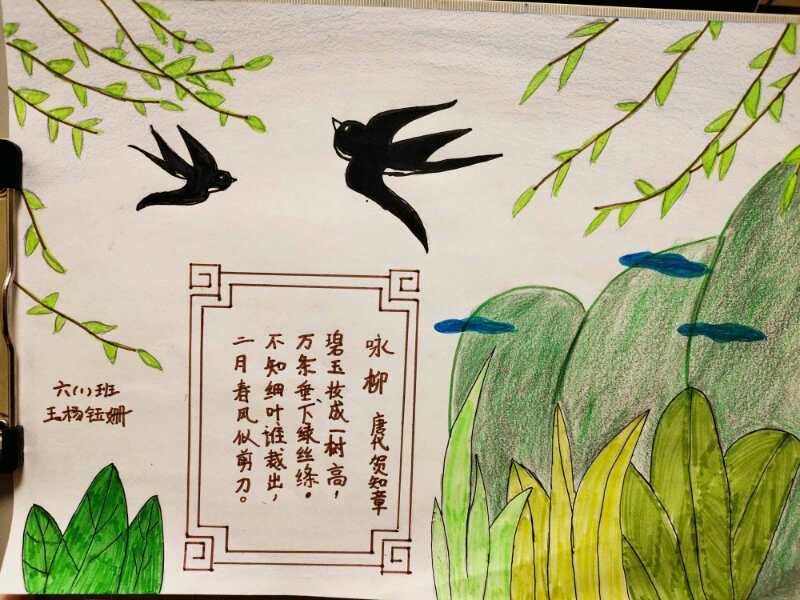 咏柳 唐代 贺知章
碧玉妆成一树高，
万条垂下绿丝绦。
不知细叶谁裁出，
二月春风似剪刀。
六(1)班
王杨钰姗